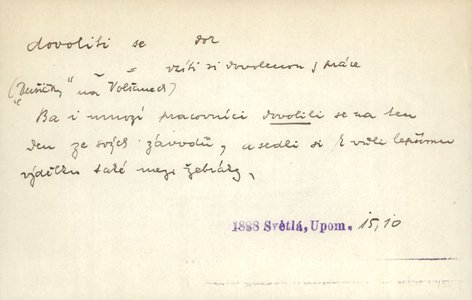 dovoliti se dok
= vzíti si dovolenou z práce
("Dušičky" na Volšanech)
Ba i mnozí pracovníci dovolili se na ten
den ze svých závodů, a sedli si k vůli lepšímu
výdělku také mezi žebráky.
1888 Světlá, Upom. 15,10